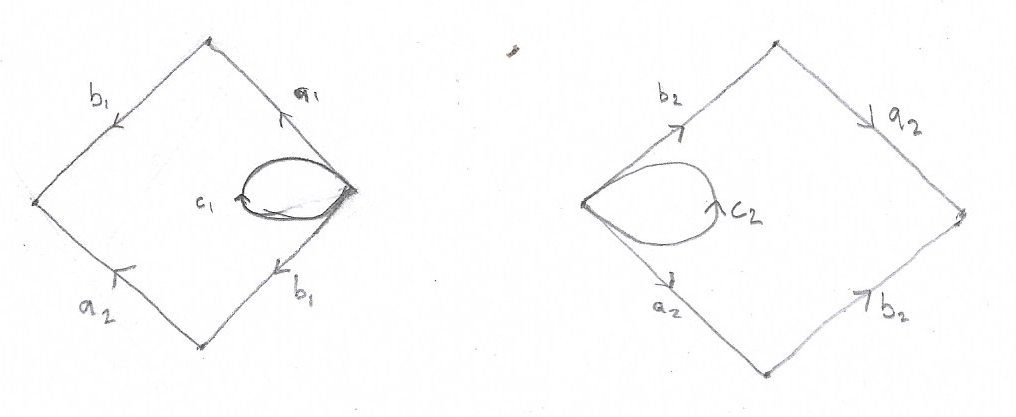 b₁
a₁
c₁
a₂
b₁
b₂
a₂
c₂
a₂
b₂